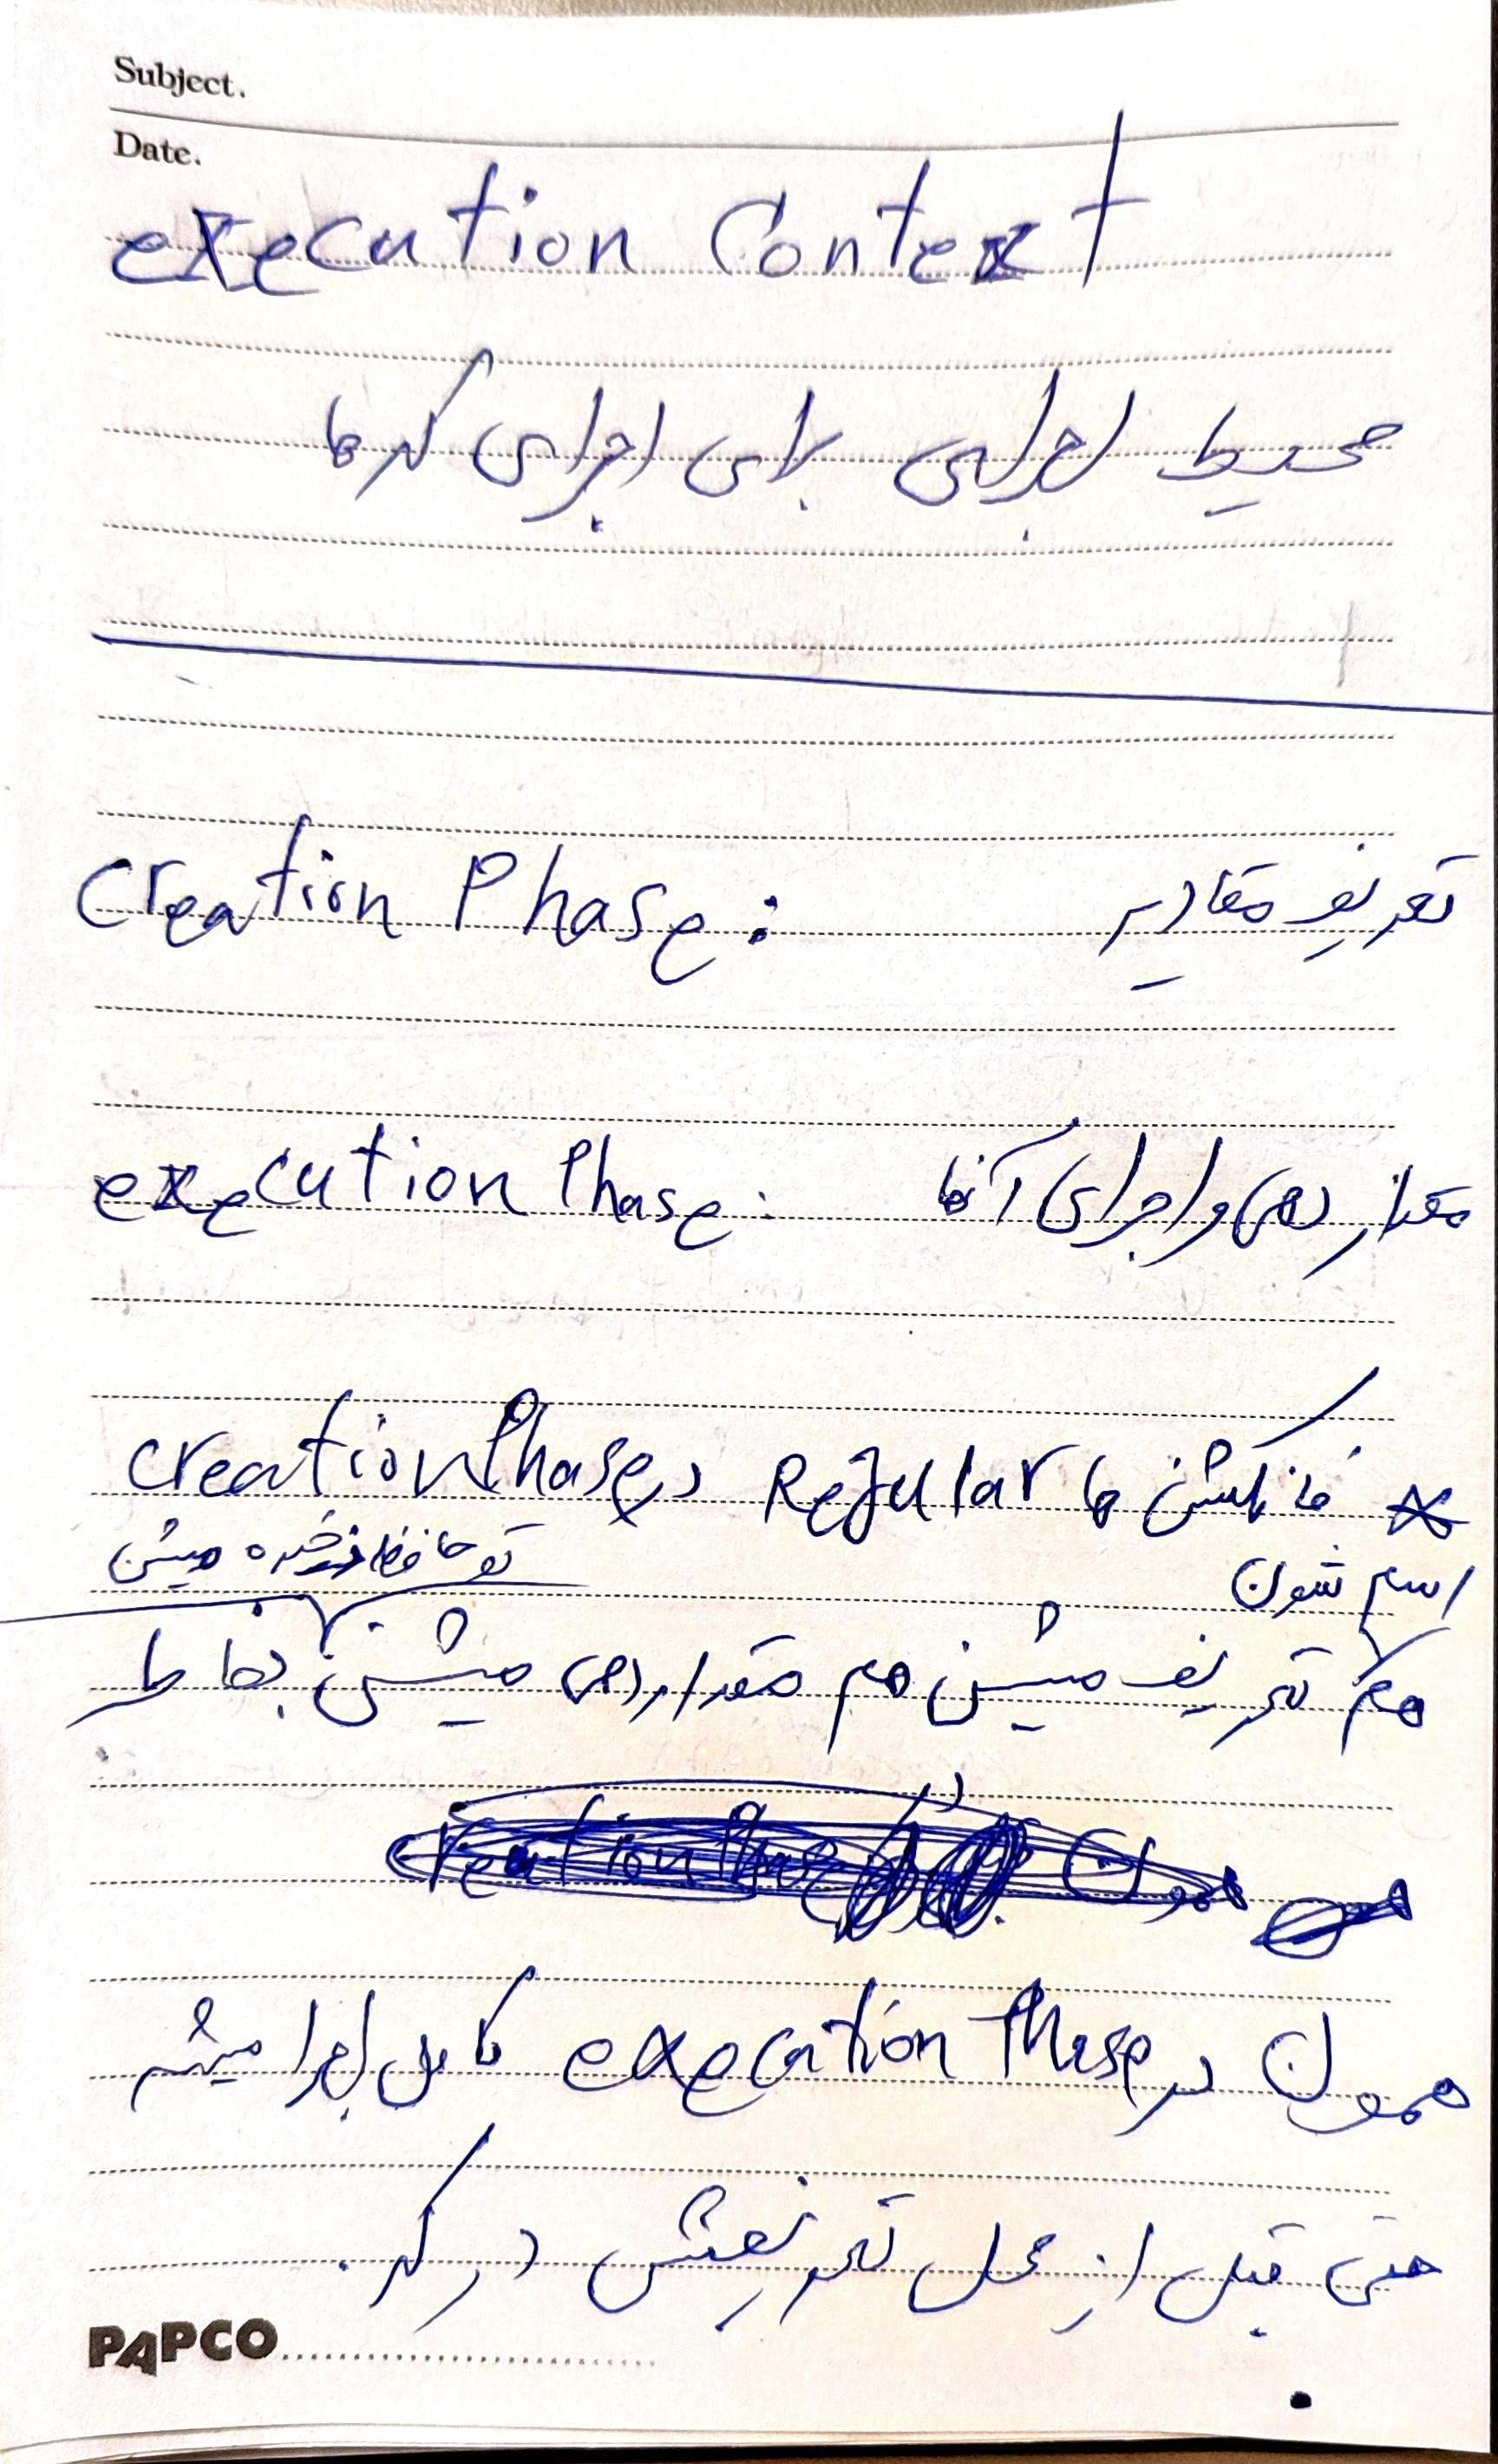 Subject.
Date.
execution Context
محیط اجرایی برای اجرای کدها
Creation Phase: تعریف مقادیر
execution Phase: مقدار دهی و اجرای آنها
* فانکشن ها Regular در creation Phase
اسم شون تو حافظه ذخیره میشن
هم تعریف میشن هم مقدار دهی میشن بخاطر
همون
همون در execution Phase کامل اجرا میشه
حتی قبل از محل تعریفش در کد.
PAPCO